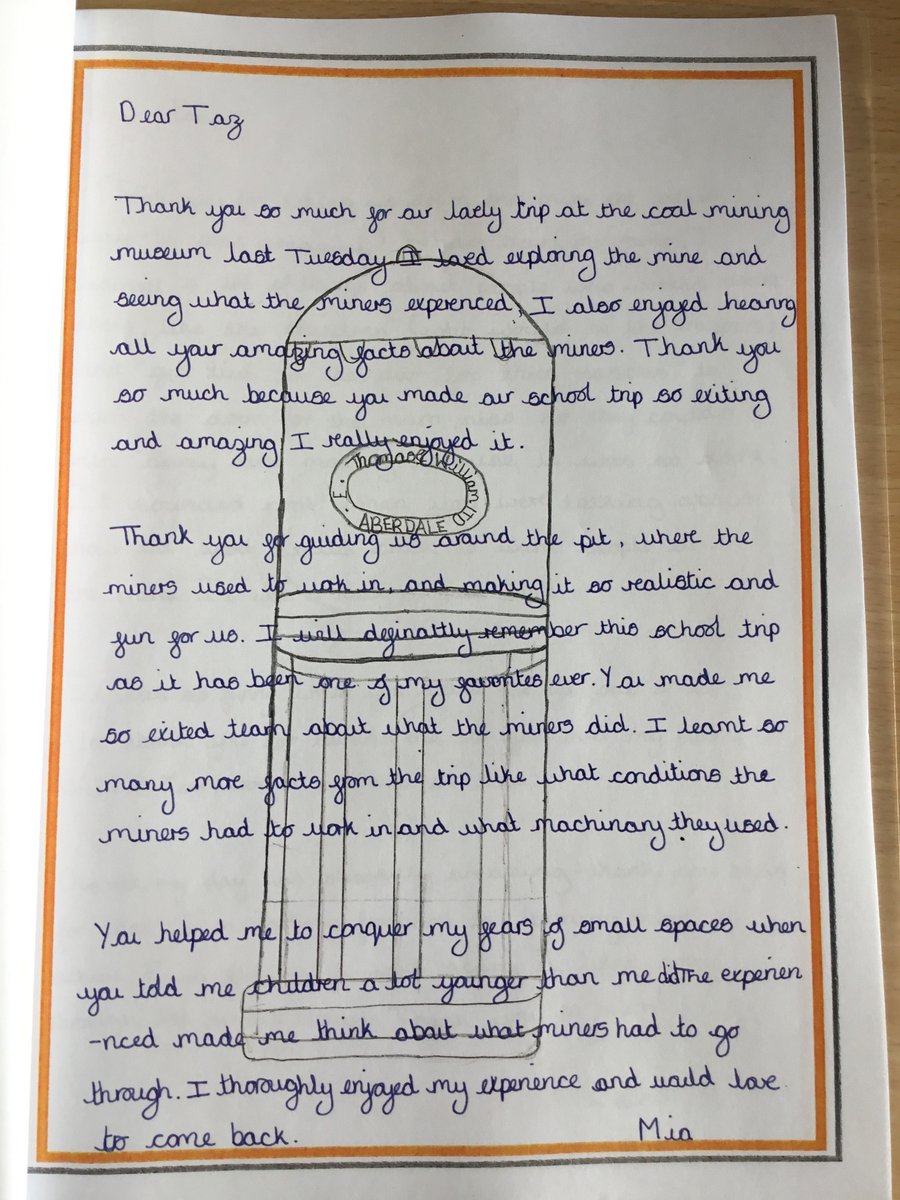 Dear Taz
Thank you so much for our lovely trip at the coal mining
museum last Tuesday I loved exploring the mine and
seeing what the miners experenced, I also enjoyed hearing
all your amazing facts about the miners. Thank you
so much because you made our school trip so exiting
and amazing I really enjoyed it.
E. Thomas & William LTD
ABERDALE
Thank you for guiding us around the pit, where the
miners used to work in, and making it so realistic and
fun for us. I will definaltly remember this school trip
as it has been one of my favorites ever. You made me
so exited about what the miners did. I learnt so
many more facts from the trip like what conditions the
miners had to work in and what machinary they used.
You helped me to conquer my fears of small spaces when
you told me children a lot younger than me did. The experien
-nced made me think about what miners had to go
through. I thoroughly enjoyed my experience and would love
to come back.
Mia